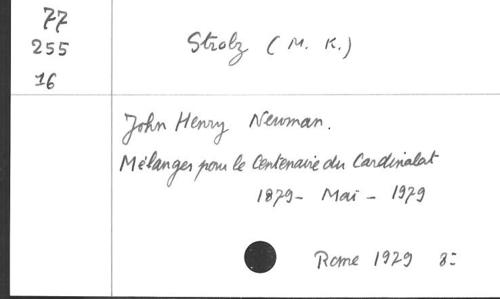 77
255
16
Strolz (M. K.)
John Henry Newman.
Mélanges pour le Centenaire du Cardinalat
1879 - Mai - 1979
Rome 1979 8=